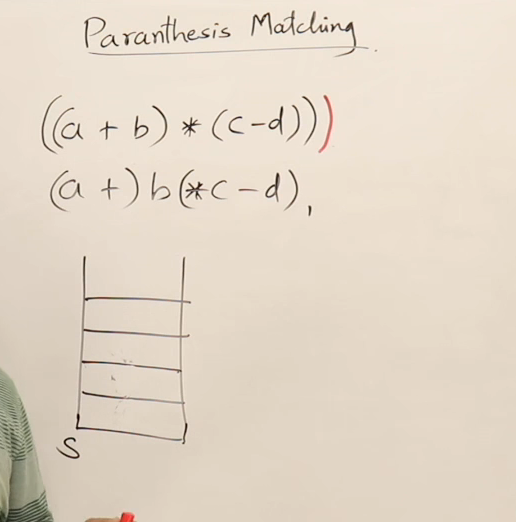 Paranthesis Matching
((a + b) * (c-d)))
(a +) b(*c-d),
S